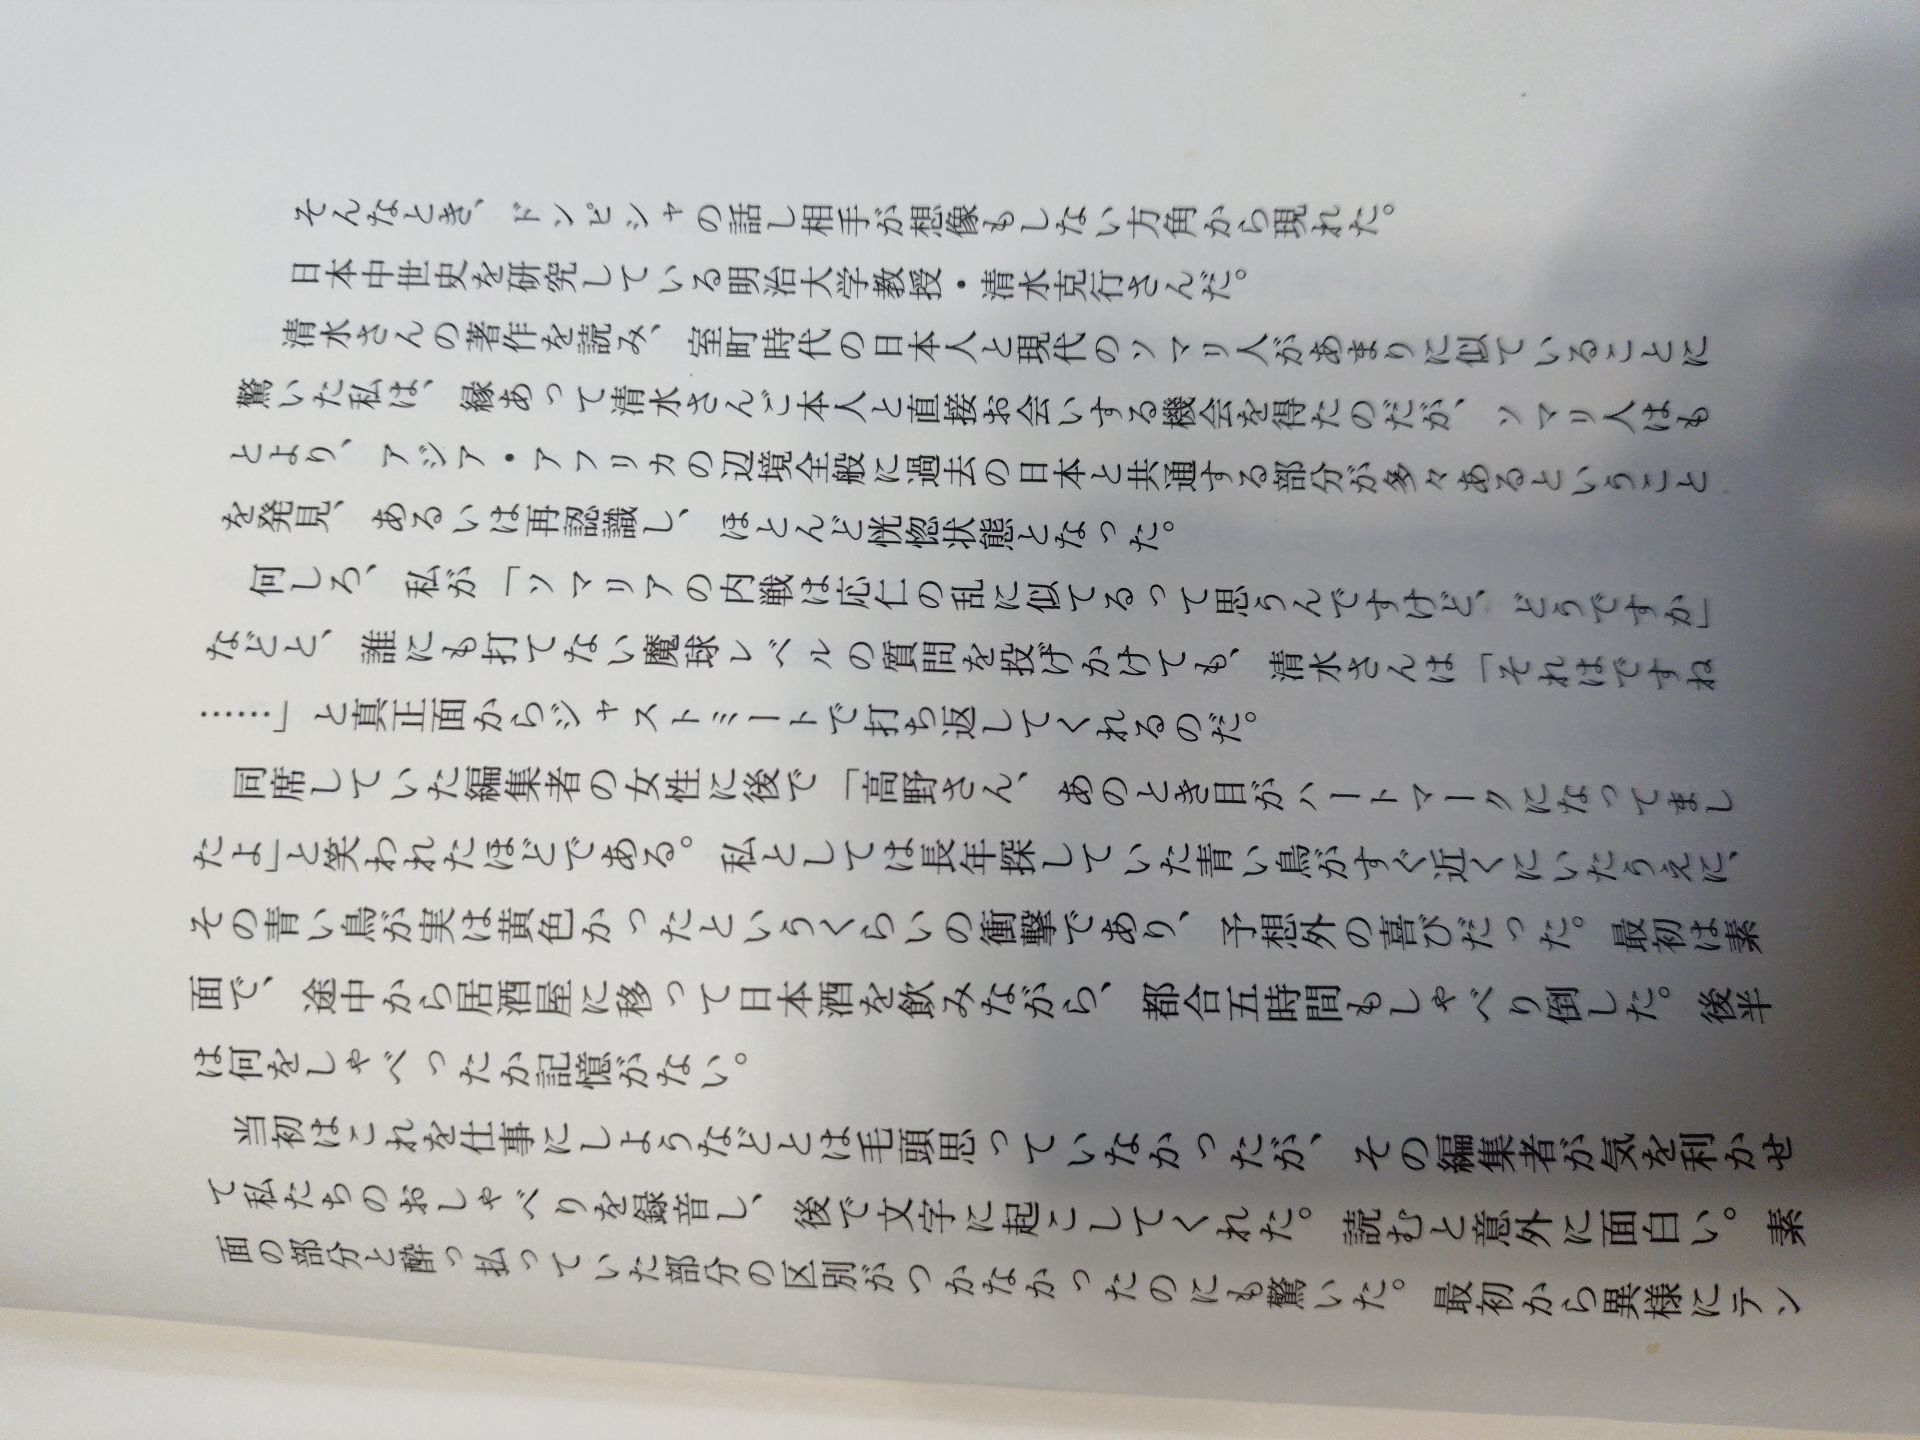 そんなとき、ドンピシャの話し相手が想像もしない方角から現れた。
日本中世史を研究している明治大学教授・清水克行さんだ。
清水さんの著作を読み、室町時代の日本人と現代のソマリ人があまりに似ていることに
驚いた私は、縁あって清水さんご本人と直接お会いする機会を得たのだが、ソマリ人はも
とより、アジア・アフリカの辺境全般に過去の日本と共通する部分が多々あるということ
を発見、あるいは再認識し、ほとんど恍惚状態となった。
何しろ、私が「ソマリアの内戦は応仁の乱に似てるって思うんですけど、どうですか」
などと、誰にも打てない魔球レベルの質問を投げかけても、清水さんは「それはですね
……」と真正面からジャストミートで打ち返してくれるのだ。
同席していた編集者の女性に後で「高野さん、あのとき目がハートマークになってまし
たよ」と笑われたほどである。私としては長年探していた青い鳥がすぐ近くにいたうえに、
その青い鳥が実は黄色かったというくらいの衝撃であり、予想外の喜びだった。最初は素
面で、途中から居酒屋に移って日本酒を飲みながら、都合五時間もしゃべり倒した。後半
は何をしゃべったか記憶がない。
当初はこれを仕事にしようなどとは毛頭思っていなかったが、その編集者が気を利かせ
て私たちのおしゃべりを録音し、後で文字に起こしてくれた。読むと意外に面白い。素
面の部分と酔っ払っていた部分の区別がつかなかったのにも驚いた。最初から異様にテン